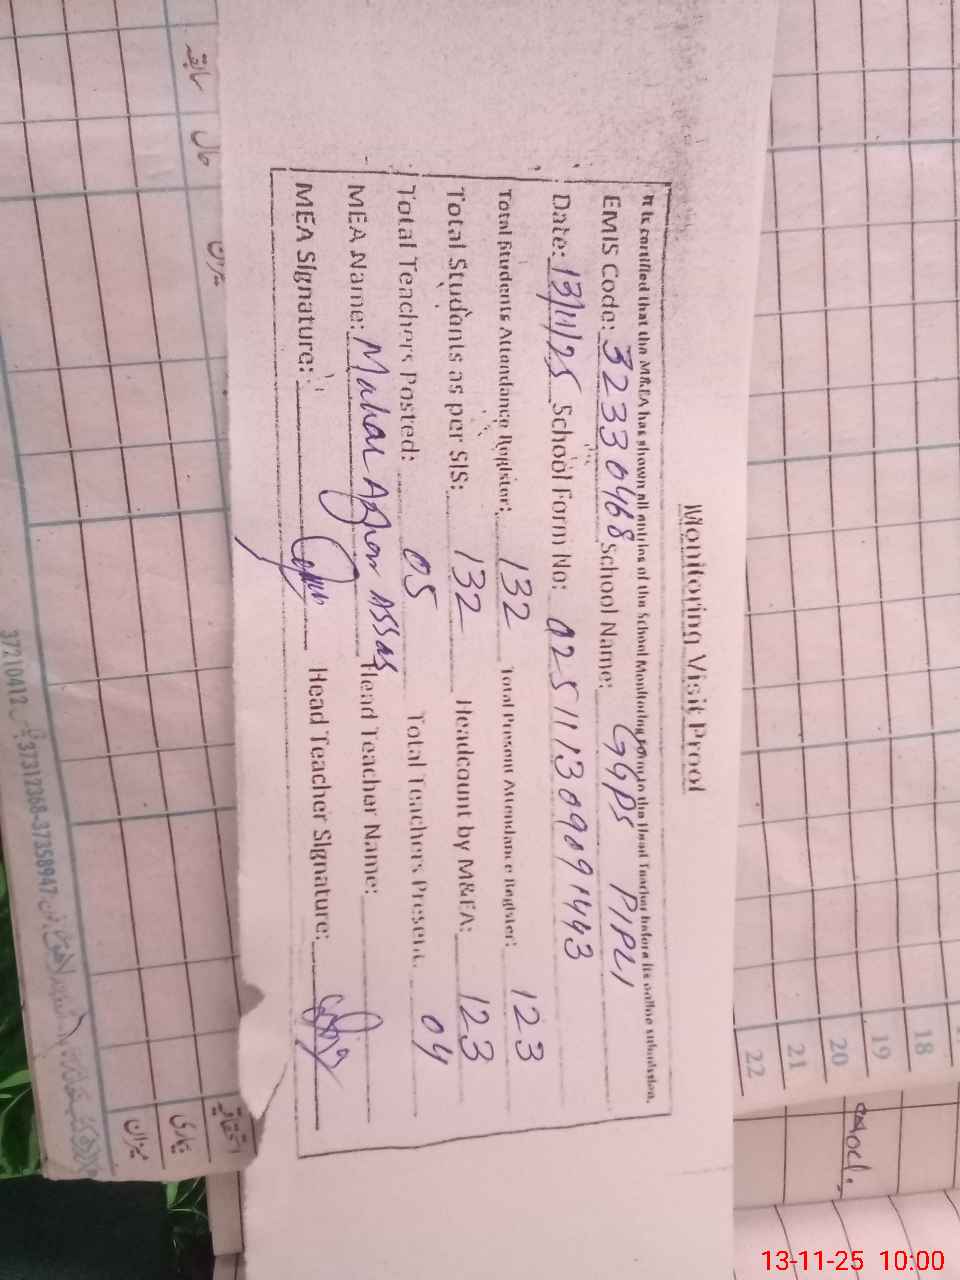 Monitoring Visit Proof
It is certified that the M&EA has shown all entries of the School Monitoring Form to the Head Teacher before its online submission.
EMIS Code: 32330468 School Name: GGPS PIPLI
Date: 13/11/25 School Form No: 025111309091443
Total Students Attendance Register: 132 Total Present Attendance Register: 123
Total Students as per SIS: 132 Headcount by M&EA: 123
Total Teachers Posted: 05 Total Teachers Present. 04
MEA Name: Mahar Head Teacher Name:
MEA Signature: Head Teacher Signature:
18
19
20
21
22
سابقہ
حال
میزان
میزان
37210412
37312368-37358947
13-11-25 10:00